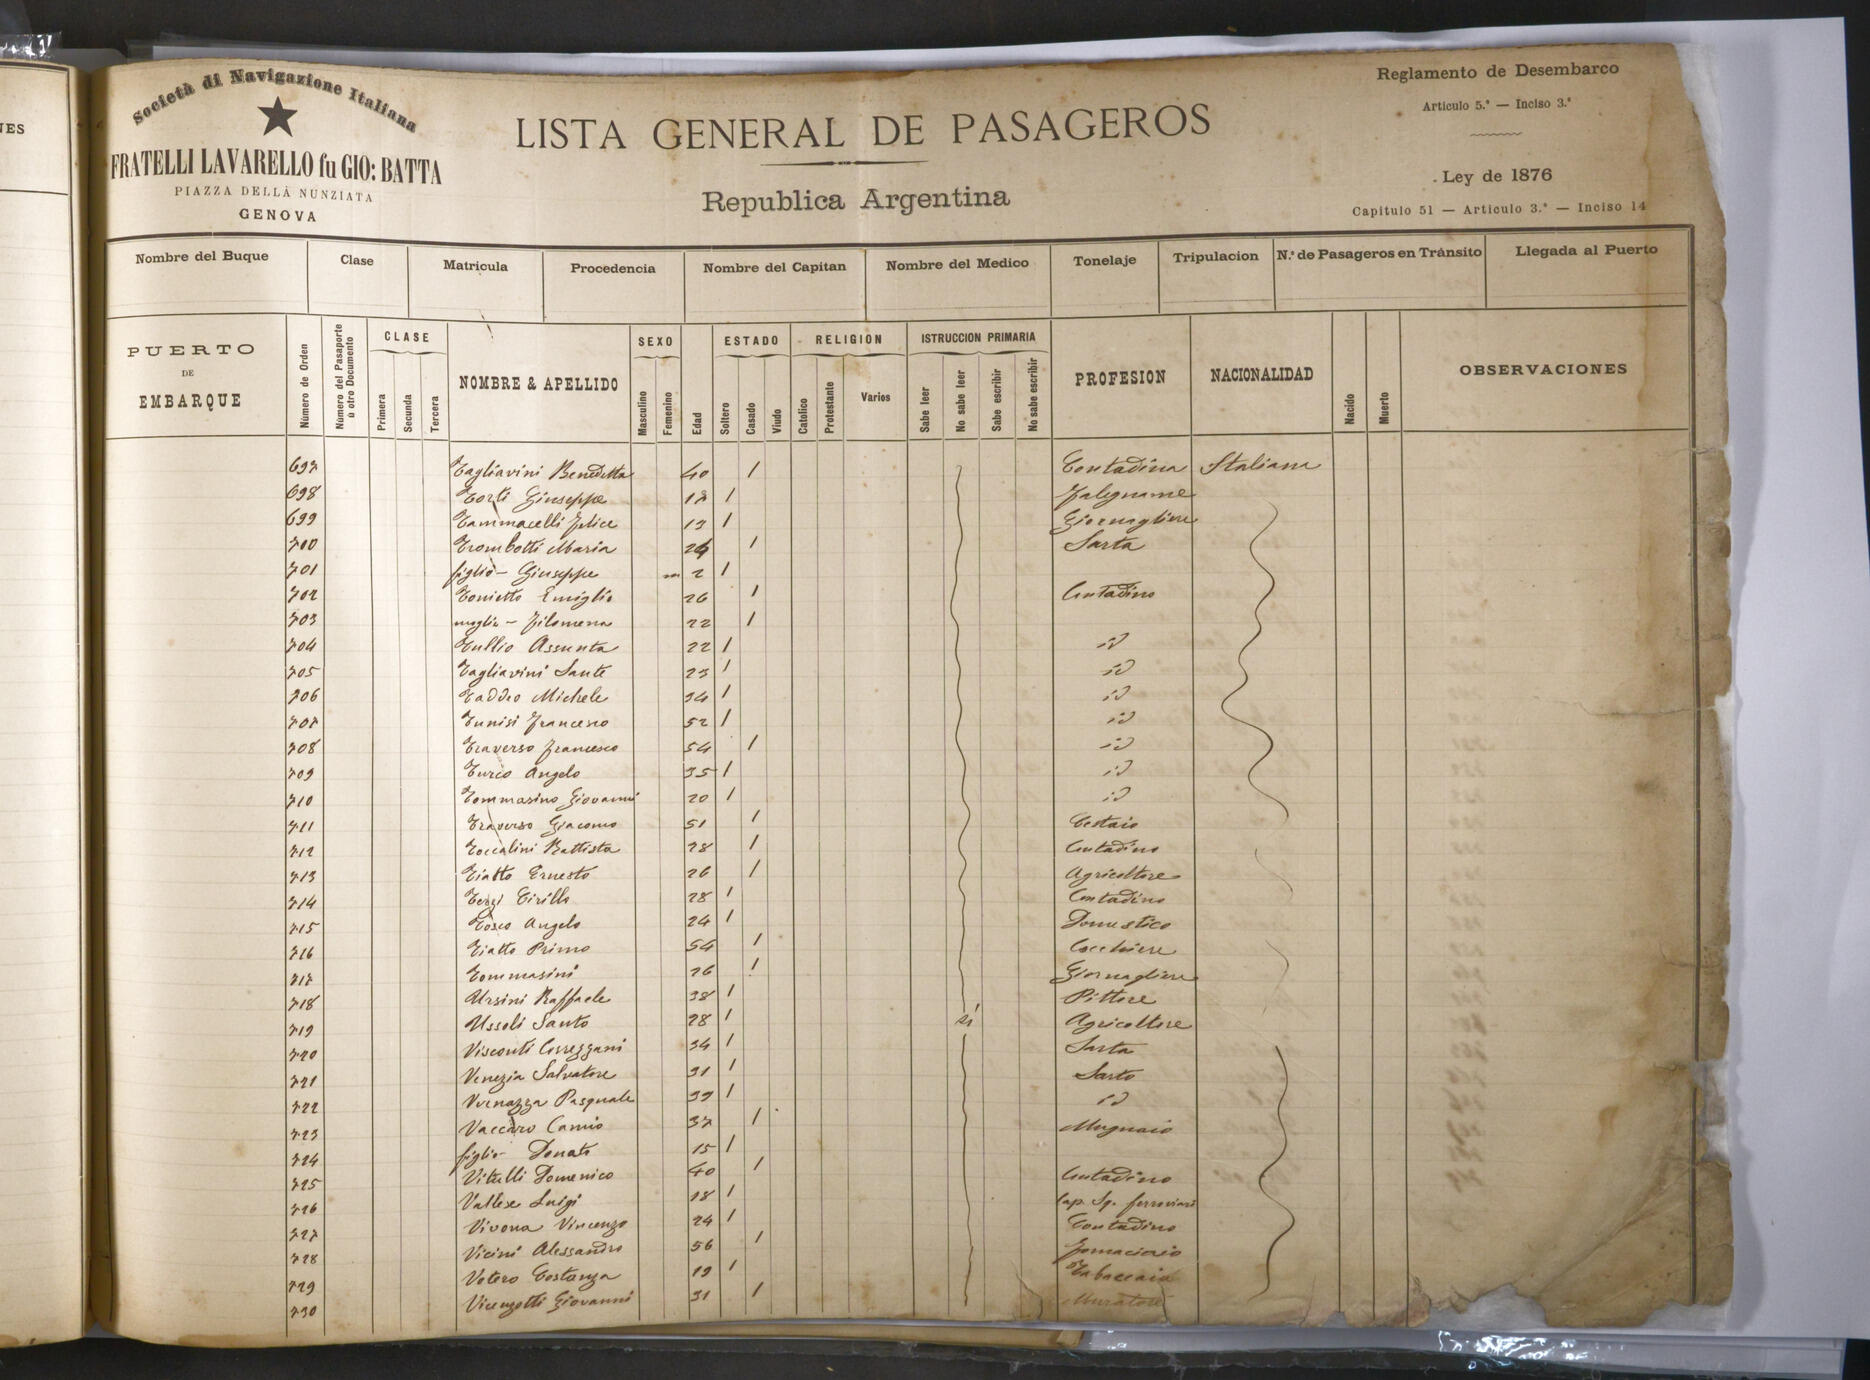 NES
Società di Navigazione Italiana
FRATELLI LAVARELLO fu GIO: BATTA
PIAZZA DELLA NUNZIATA
GENOVA
LISTA GENERAL DE PASAGEROS
Republica Argentina
Reglamento de Desembarco
Articulo 5.º — Inciso 3.º
Ley de 1876
Capitulo 51 — Articulo 3.º — Inciso 14
Nombre del Buque Clase Matricula Procedencia Nombre del Capitan Nombre del Medico Tonelaje Tripulacion N.º de Pasageros en Trànsito Llegada al Puerto
PUERTO DE EMBARQUE Número de Orden Número del Pasaporte ù otro Documento CLASE Primera Secunda Tercera NOMBRE & APELLIDO SEXO Masculino Femenino Edad ESTADO Soltero Casado Viudo RELIGION Catolico Protestante Varios ISTRUCCION PRIMARIA Sabe leer No sabe leer Sabe escribir No sabe escribir PROFESION NACIONALIDAD Nacido Muerto OBSERVACIONES
697 Tagliavini Benedetta 40 / Contadina Italiana
698 Torti Giuseppe 17 / Falegname
699 Tammacelli Felice 19 / Giornagliere
700 Trombotti Maria 24 / Sarta
701 figlio - Giuseppe m 2 /
702 Tonietto Emiglio 26 / Contadino
703 moglie - Filomena 22 /
704 Tullio Assunta 22 / id
705 Tagliavini Sante 23 / id
706 Taddeo Michele 34 / id
707 Tunisi Francesco 52 / id
708 Traverso Francesco 54 / id
709 Turco Angelo 35 / id
710 Tommasino Giovanni 20 / id
711 Traverso Giacomo 51 / Cestaio
712 Toccalini Battista 28 / Contadino
713 Tiatto Ernesto 26 / Agricoltore
714 Terzi Cirillo 28 / Contadino
715 Tosco Angelo 24 / Domestico
716 Tiatto Primo 54 / Cocchiere
717 Tommasini 26 / Giornagliere
718 Ursini Raffaele 38 / Pittore
719 Ussoli Santo 28 / si Agricoltore
720 Visconti 34 / Sarta
721 Venezia Salvatore 31 / Sarto
722 Vernazza Pasquale 39 / id
723 Vaccaro Canio 37 / Mugnaio
724 figlio - Donato 15 /
725 Vitulli Domenico 40 / Contadino
726 Vallese Luigi 18 / Cap. Sq. ferroviari
727 Vivona Vincenzo 24 / Contadino
728 Vicini Alessandro 56 / Fornaciaio
729 Votero Costanza 19 / Tabaccaia
730 Vicenzotti Giovanni 31 / Muratore